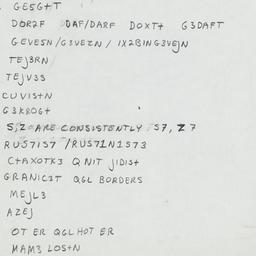 GE5G+T
DOR2F DAF/DARF DOXT+ G3DAFT
GEVE5N/G3VEZN/ IXZBING3VEJN
TEJ3RN
TEJV3S
CUVIS+N
G3KROG+
S,Z ARE CONSISTENTLY S7, Z7
RUS7IS7/RUS7IN1573
C+AXOTK3 QNIT JIDIS+
GRANICZT QGL BORDERS
MEJL3
AZEJ
OT ER QGL HOT ER
MAM3 LOS+N